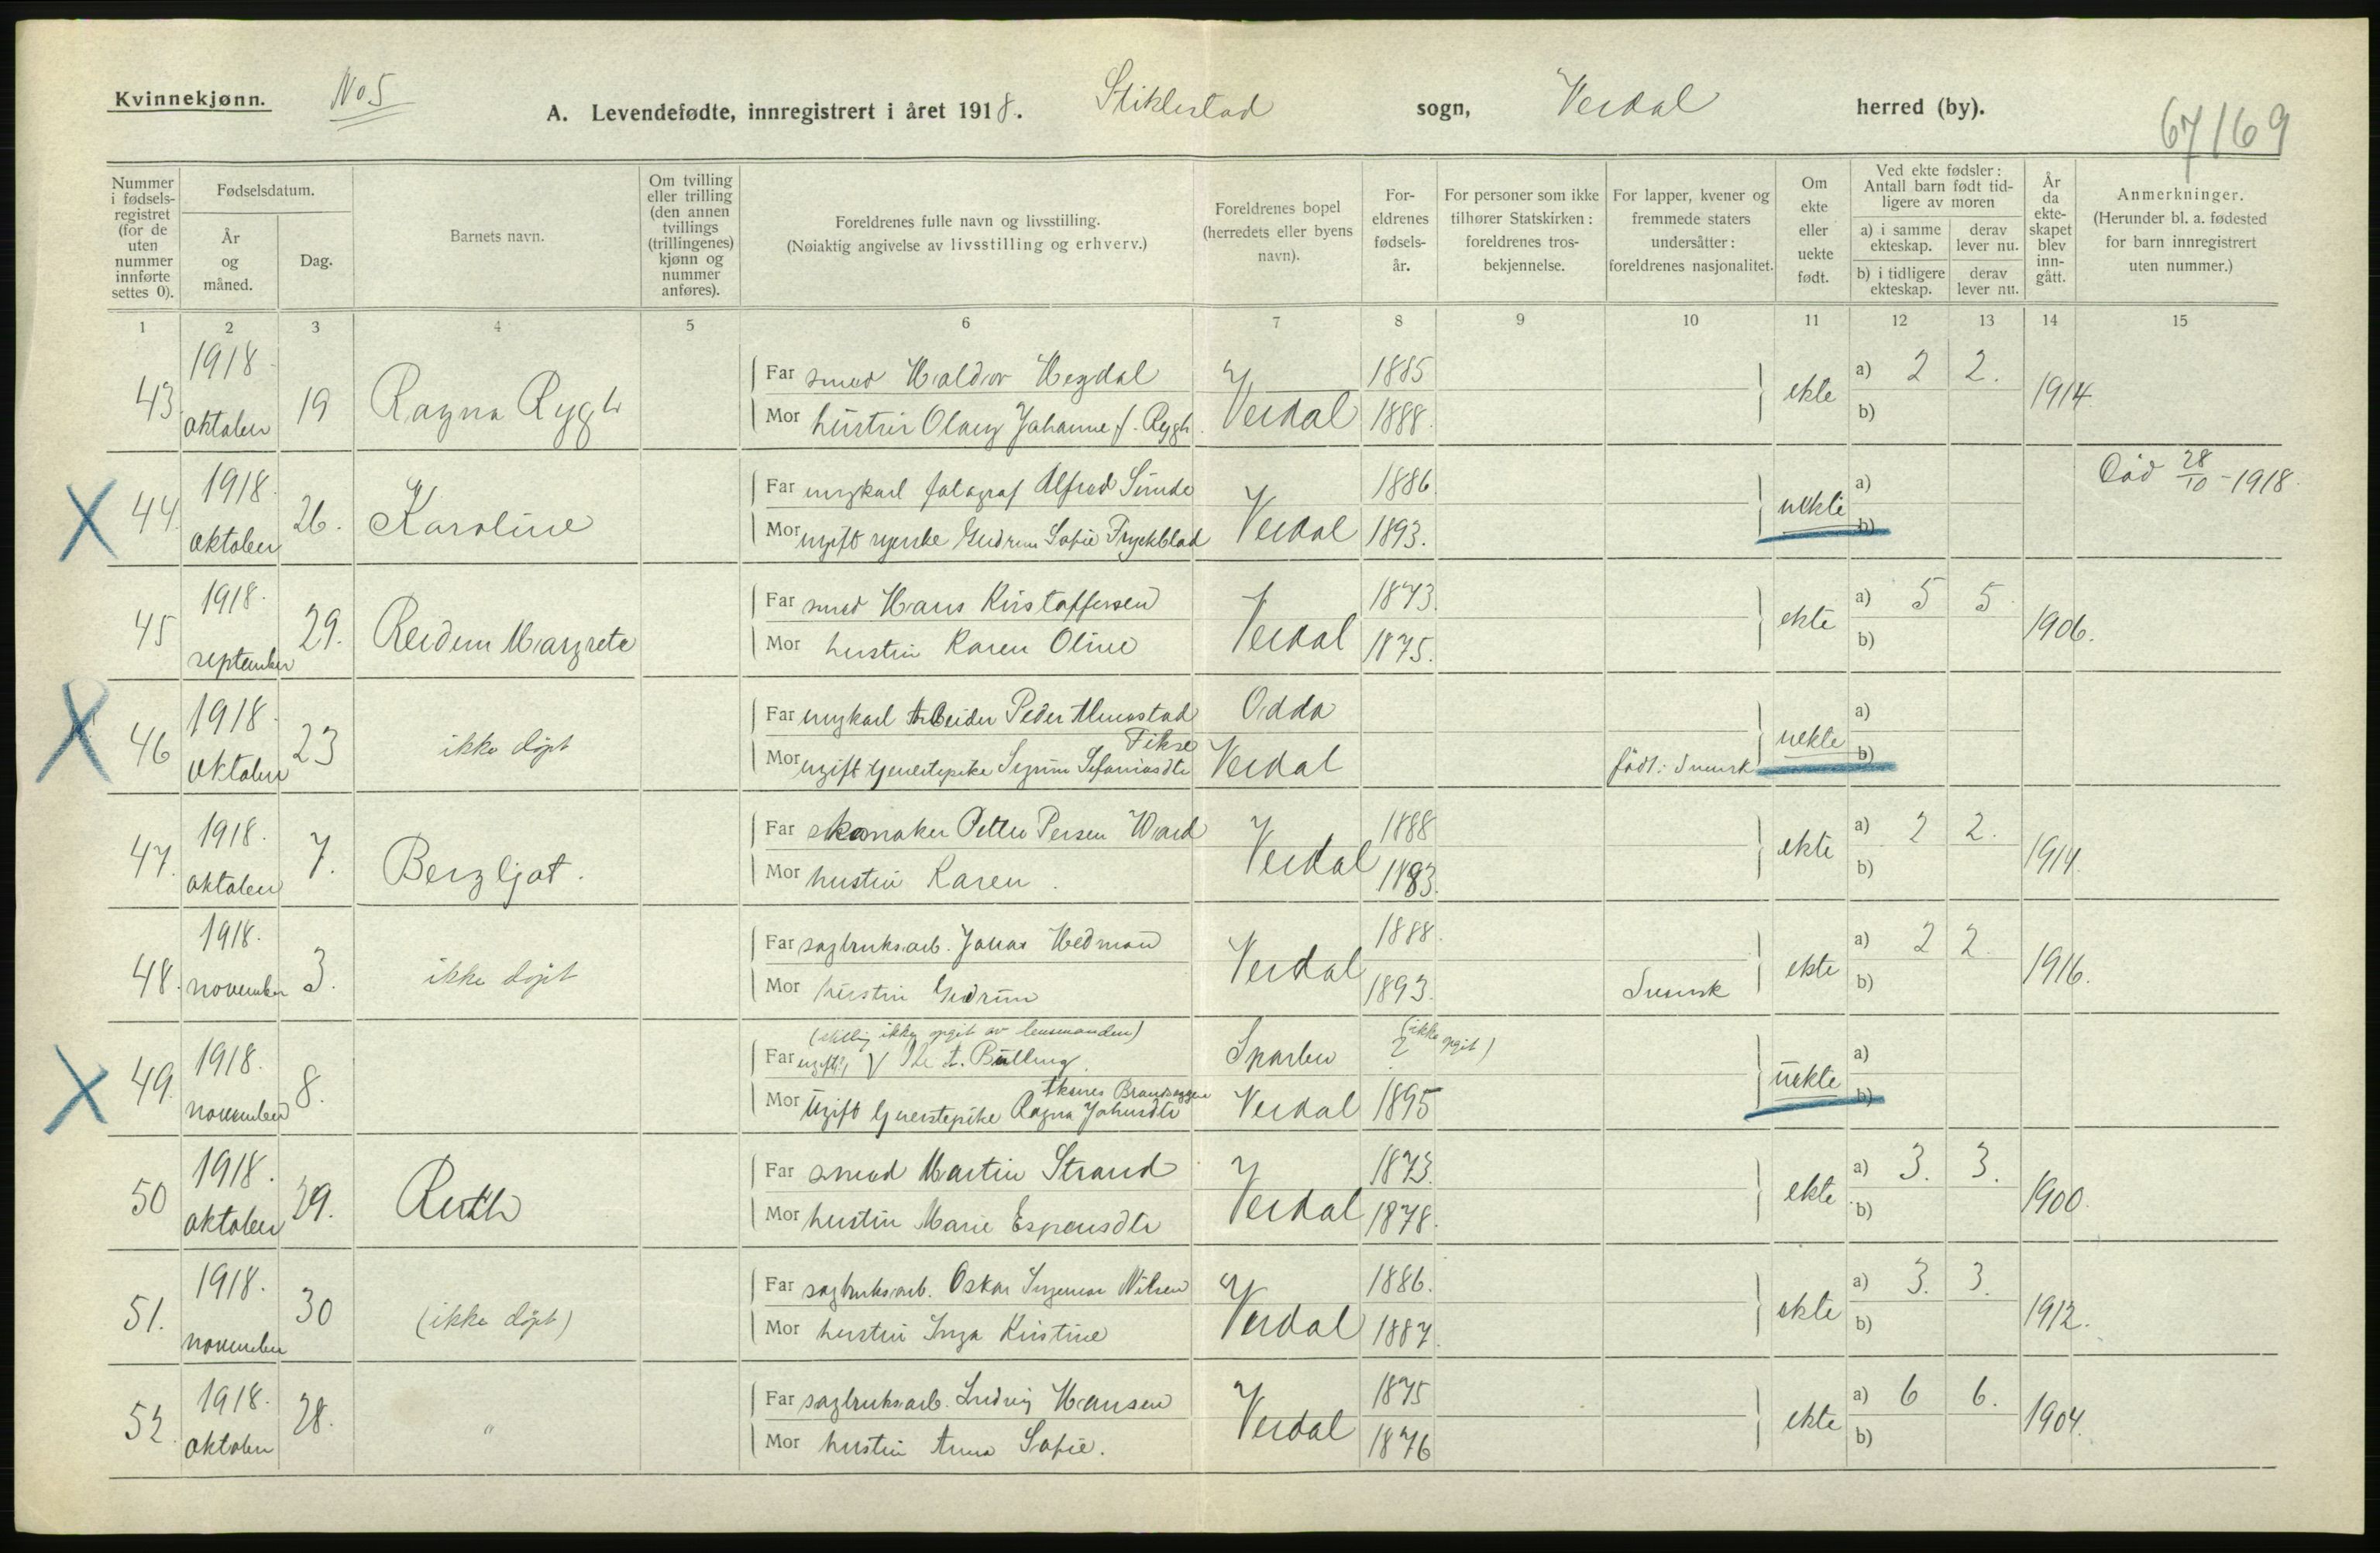 Kvinnekjønn.
No 5
A. Levendefødte, innregistrert i året 1918. Stiklestad sogn, Verdal herred (by).
67/169
Nummer i fødsels-registret (for de uten nummer innførte settes 0).
Fødselsdatum.
År og måned.
Dag.
Barnets navn.
Om tvilling eller trilling (den annen tvillings (trillingenes) kjønn og nummer anføres).
Foreldrenes fulle navn og livsstilling.
(Nøiaktig angivelse av livsstilling og erhverv.)
Foreldrenes bopel (herredets eller byens navn).
For-eldrenes fødsels-år.
For personer som ikke tilhører Statskirken: foreldrenes tros-bekjennelse.
For lapper, kvener og fremmede staters undersåtter: foreldrenes nasjonalitet.
Om ekte eller uekte født.
Ved ekte fødsler: Antall barn født tid-ligere av moren
a) i samme ekteskap.
derav lever nu.
b) i tidligere ekteskap.
derav lever nu.
År da ekte-skapet blev inn-gått.
Anmerkninger.
(Herunder bl. a. fødested for barn innregistrert uten nummer.)
1 2 3 4 5 6 7 8 9 10 11 12 13 14 15
43. 1918 oktober 19 Ragna Rygh
Far smed Haldor Hegdal 1885
Mor hustru Olaug Johanne f. Rygh. Verdal 1888.
ekte a) 2 2. b) 1914
X 44. 1918. oktober 26. Karoline
Far ungkarl fotograf Alfred Sunde 1886
Mor ugift syerske Gudrun Sofie Fryckblad Verdal 1893.
uekte a) b)
Død 28/10 - 1918.
45 1918. september 29. Reidun Margrete
Far smed Hans Kristoffersen 1873.
Mor hustru Karen Oline Verdal 1875.
ekte a) 5 5 b) 1906.
X 46 1918. oktober 23 ikke døpt
Far ungkarl Arbeider Peder Almostad Odda
Fikse
Mor ugift tjenestepike Sigrun Sefaniasdtr Verdal
født: Svensk uekte a) b)
47. 1918. oktober 7. Bergljot.
Far skomaker Petter Persen Ward 1888
Mor hustru Karen. Verdal 1883.
ekte a) 2 2. b) 1914.
48. 1918. november 3. ikke døpt
Far sagbruksarb. Jonas Hedman 1888.
Mor hustru Gudrun Verdal 1893.
Svensk ekte a) 2 2 b) 1916.
(stilling ikke opgit av lensmanden)
X 49. 1918. november 8.
Far ugift, Bulling. Sparbu ? (ikke opgit)
Mor Ugift tjenestepike Ragna Johnsdtr Verdal 1895
uekte a) b)
50 1918. oktober 29. Ruth
Far smed Martin Strand 1873.
Mor hustru Marie Espensdtr Verdal 1878.
ekte a) 3. 3. b) 1900.
51. 1918. november 30 (ikke døpt)
Far sagbruksarb. Oskar Ingemar Nilsen 1886.
Mor hustru Inga Kristine Verdal 1887.
ekte a) 3. 3. b) 1912.
52. 1918. oktober 28. "
Far sagbruksarb. Ludvig Hansen 1875
Mor hustru Anna Sofie. Verdal 1876
ekte a) 6 6. b) 1904.